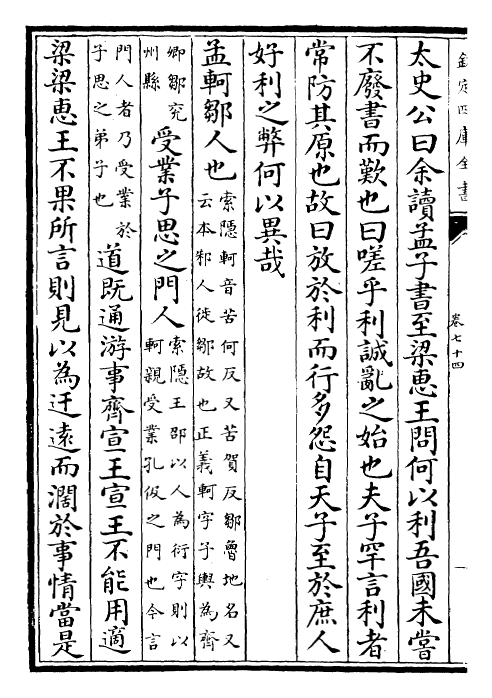 欽定四庫全書
卷七十四
一
太史公曰余讀孟子書至梁惠王問何以利吾國未嘗
不廢書而歎也曰嗟乎利誠亂之始也夫子罕言利者
常防其原也故曰放於利而行多怨自天子至於庶人
好利之弊何以異哉
孟軻鄒人也
索隱軻音苦何反又苦賀反鄒魯地名又
云本邾人徙鄒故也正義軻字子輿為齊
卿鄒兖
州縣
受業子思之門人
索隱王邵以人為衍字則以
軻親受業孔伋之門也今言
門人者乃受業於
子思之弟子也
道既通游事齊宣王宣王不能用適
梁梁惠王不果所言則見以為迂遠而濶於事情當是